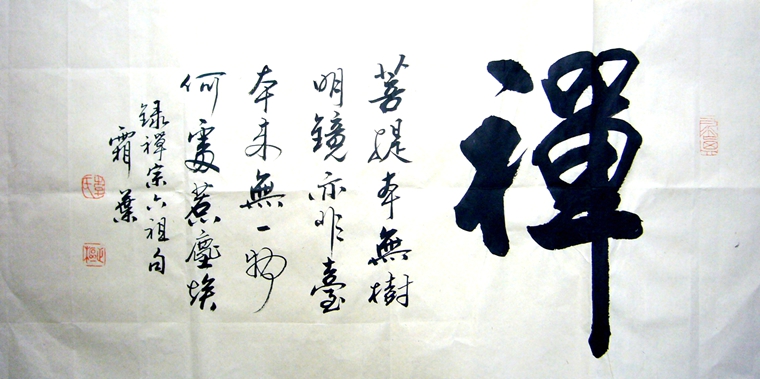 禪
菩提本無樹
明鏡亦非臺
本来無一物
何處惹塵埃
録禪宗六祖句
霜葉